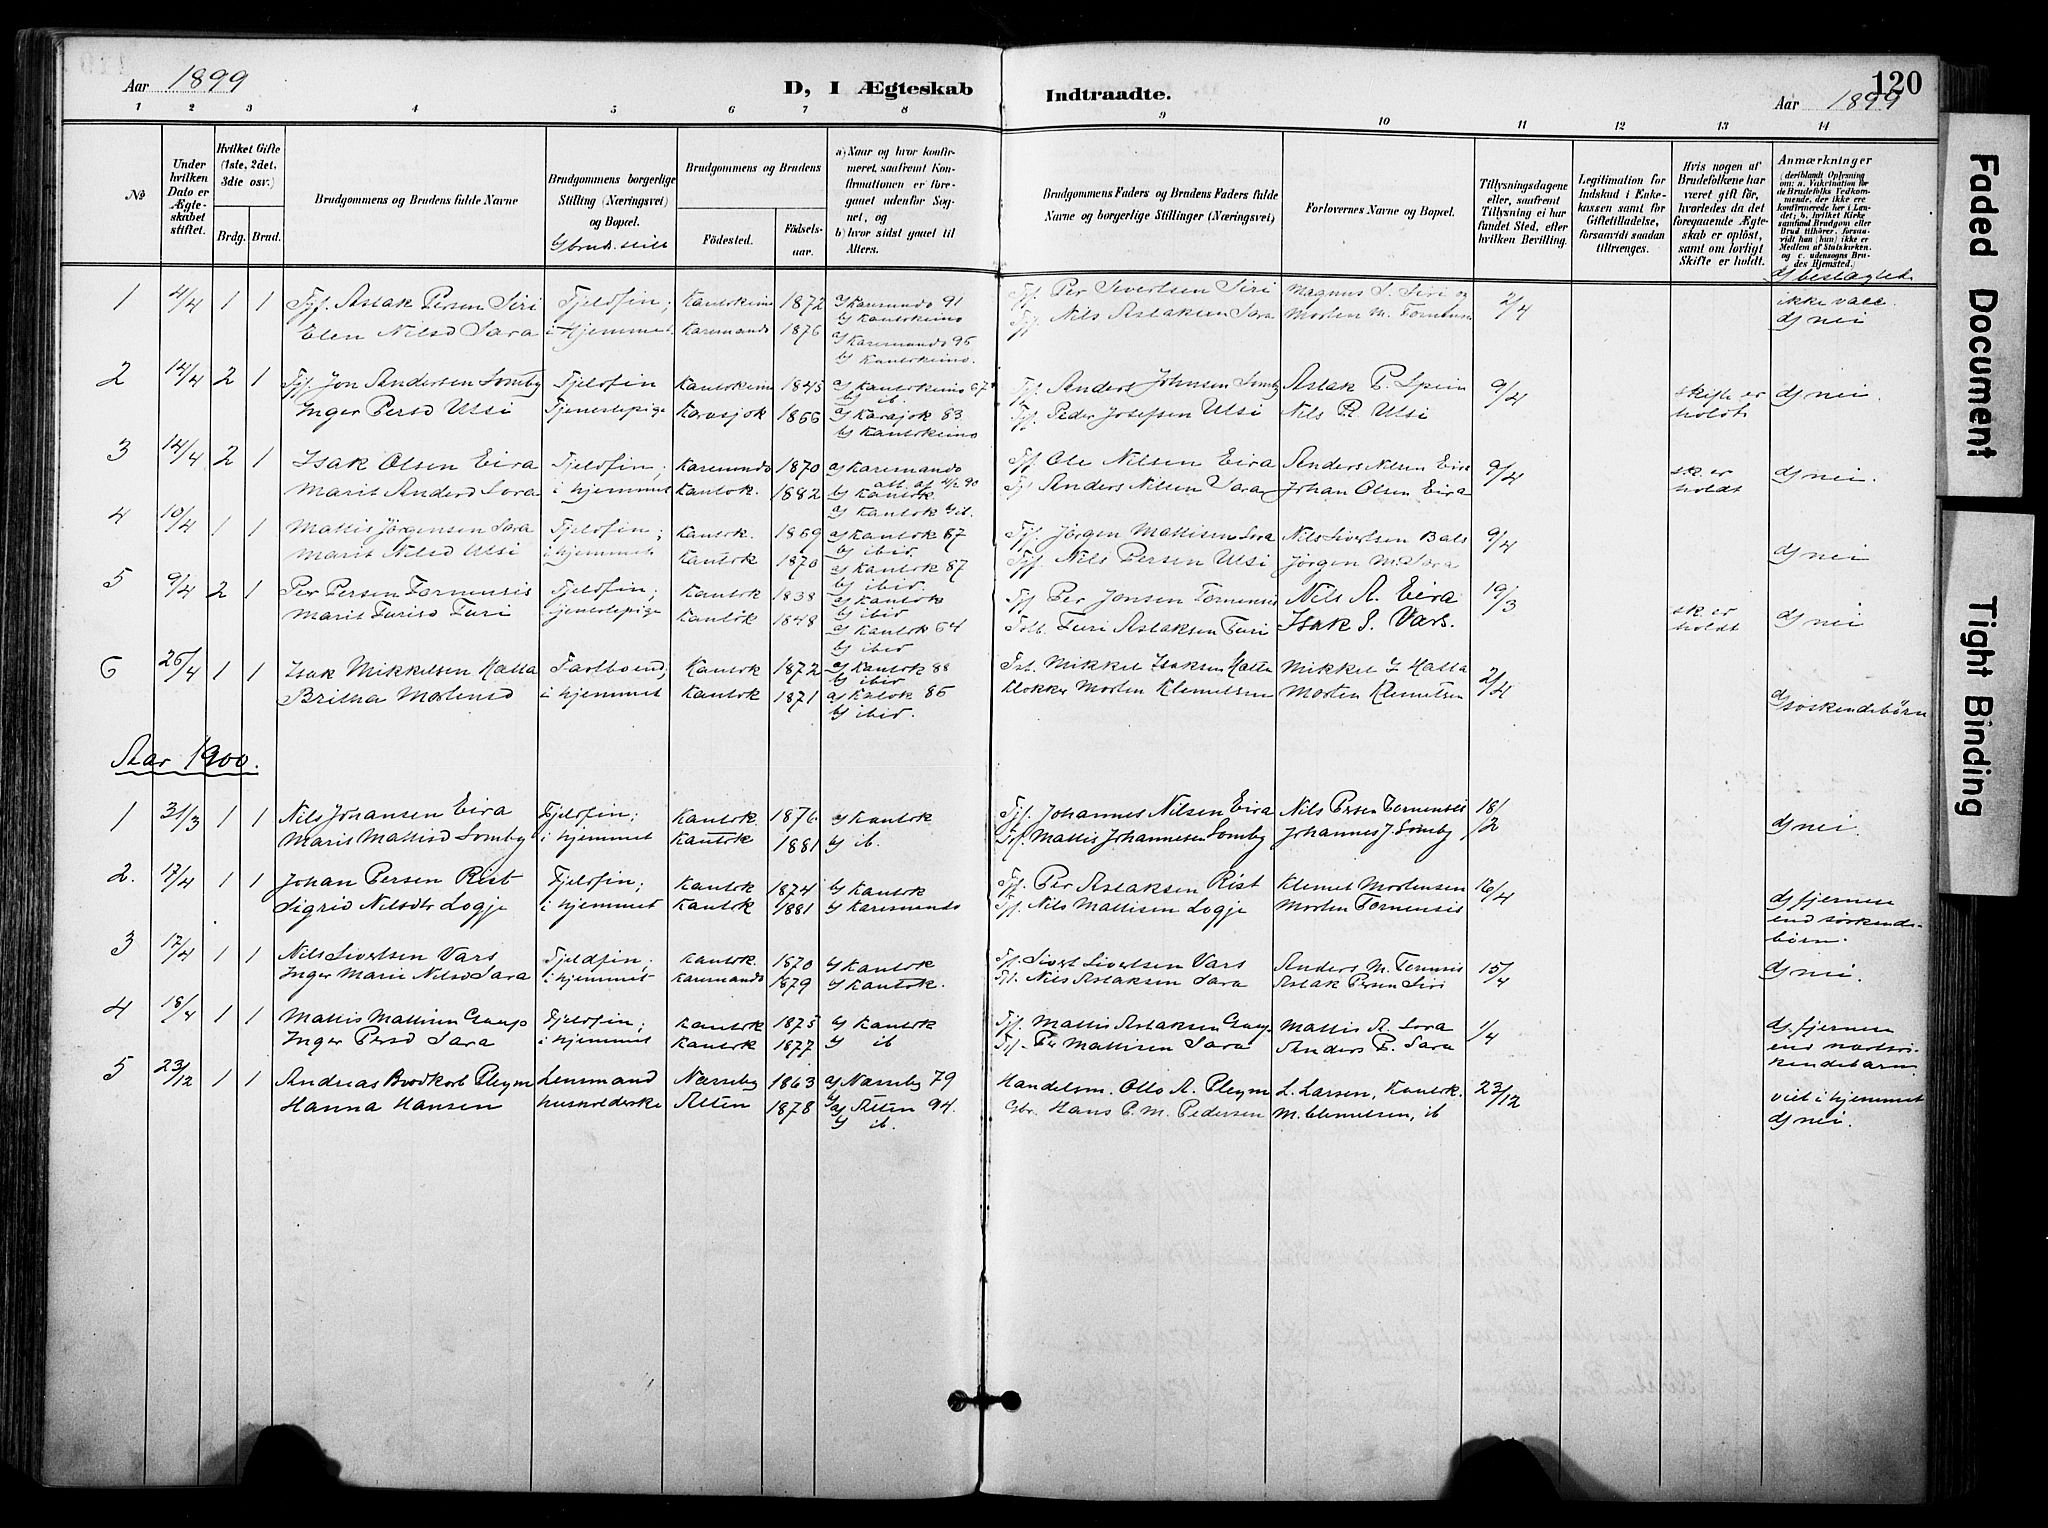 Aar 1899
D, I Ægteskab Indtraadte.
120
Aar 1899
1 2 3 4 5 6 7 8 9 10 11 12 13 14
№
Under hvilken Dato er Ægteskabet stiftet.
Hvilket Gifte (1ste, 2det, 3die osv.)
Brdg. Brud.
Brudgommens og Brudens fulde Navne
Brudgommens borgerlige Stilling (Næringsvei) og Bopæl.
b) bruds still
Brudgommens og Brudens
Fødested. Fødselsaar.
a) Naar og hvor konfirmeret, saafremt Konfirmationen er foregaaet udenfor Sognet, og
b) hvor sidst gaaet til Alters.
Brudgommens Faders og Brudens Faders fulde Navne og borgerlige Stillinger (Næringsvei)
Forlovernes Navne og Bopæl.
Tillysningsdagene eller, saafremt Tillysning ei har fundet Sted, efter hvilken Bevilling.
Legitimation for Indskud i Enkekassen samt for Giftetilladelse, forsaavidt saadan tiltrænges.
Hvis nogen af Brudefolkene har været gift før, hvorledes da det foregaaende Ægteskab er opløst, samt om lovligt Skifte er holdt.
Anmærkninger (deriblandt Oplysning om: a. Vakcination for de Brudefolks Vedkommende, der ikke ere konfirmerede her i Landet; b. hvilket Kirkesamfund Brudgom eller Brud tilhører, forsaavidt han (hun) ikke er Medlem af Statskirken, og c. udensogns Brudes Hjemsted.)
d) beslægtet
1 4/4 1 1 Fjf. Aslak Persen Siri Fjeldfin; Kautokeino 1872 a) Karesuando 91 Fjf. Per Sivertsen Siri Magnus S. Siri og 2/4 ikke vacc.
b) Kautokeino
Elen Nilsd Sara i hjemmet Karesuando 1876 a) Karesuando 95 Fjf. Nils Aslaksen Sara Morten M. d) nei
b) Kautokeino.
2 14/4 2 1 Fjf. Jon Andersen Somby Fjeldfin Kautokeino 1845 a) Kautokeino 67 Fjf. Anders Johnsen Somby Aslak P. Spein 9/4 skifte er d) nei.
b) ib.
Inger Persd Utsi Tjenestepige Karasjok 1866 a) Karasjok 83. Fjf. Peder Josefsen Utsi Nils P. Utsi holdt.
b) Kautokeino
3 14/4 2 1 Isak Olsen Eira Fjeldfin; Karesuando 1870 a) Karesuando Fjf. Ole Nilsen Eira Anders Nilsen Eira 9/4 sk. er d) nei.
b) Kautok.
Marit Andersd Sara i hjemmet Kautok. 1882 a) Kautok b) ib. Fjf Anders Nilsen Sara Johan Olsen Eira holdt
4 10/4 1 1 Mattis Jørgensen Sara Fjeldfin; Kautok. 1869 a) Kautok 87 Fjf. Jørgen Mattisen Sara Nils Sivertsen Bals 9/4
b) ibid.
Marit Nilsd Utsi i hjemmet Kautok 1870 a) Kautok 87 Fjf Nils Persen Utsi Jørgen M. Sara d) nei
b) ibid.
5 9/4 2 1 Per Persen Tornensis Fjeldfin; Kautok 1838 a) Kautok Fjf Per Jonsen Tornensis Nils A. Eira 19/3 sk. er d) nei
b) ibid
Marit Turisd Turi tjenestepige Kautok 1848 a) Kautok 64 Turi Aslaksen Turi Isak S. Vars. holdt
b) ibid
6 26/4 1 1 Isak Mikkelsen Hætta Fastboend; Kautok 1872 a) Kautok 88 Mikkel Isaksen Hætta Mikkel I Hætta 2/4
b) ibid
Britha Mortensd i hjemmet Kautok 1871 a) Kautok 86 Klokker Morten Klemetsen Morten Klemetsen d) søskendebørn
b) ibid.
Aar 1900.
1 31/3 1 1 Nils Johansen Eira Fjeldfin; Kautok. 1876 b) Kautok Fjf. Johannes Nilsen Eira Nils Persen Tornensis 18/2
Marit Mattisd Somby i hjemmet Kautok 1881 b) ib. Fjf. Mattis Johannesen Somby Johannes J. Somby d) nei.
2. 17/4 1 1 Johan Persen Rist Fjeldfin; Kautok 1874 b) Kautok Fjf. Per Aslaksen Rist Klemet Mortensen 16/4
Sigrid Nilsdtr Logje i hjemmet Kautok 1881 b) Karesuando Fjf. Nils Mattisen Logje Morten Tornensis d) fjernere end søskendebørn.
3 17/4 1 1 Nils Sivertsen Vars Fjeldfin; Kautok. 1870 b) Kautok Fjf. Sivert Sivertsen Vars Anders M. Tornensis 15/4 d) nei.
Inger Marie Nilsd Sara i hjemmet Karesuando 1879 b) Kautok. Fjf. Nils Aslaksen Sara Aslak Persen Siri
4 18/4 1 1 Mattis Mattisen Gaup Fjeldfin; Kautok 1875 b) Kautok Fjf. Mattis Aslaksen Gaup Mattis A. Sara 1/4 d) fjernere
Inger Persd Sara i hjemmet Kautok 1877 b) ib Fjf. Per Mattisen Sara Anders P. Sara end næstsøskendebarn
5 23/12 1 1 Andreas Brodkorb Pleym Lensmand Næsseby 1863 a) Næsseby 79 Handelsm. Otto A. Pleym L. Larsen, Kautok. 23/12 viet i hjemmet
Hanna Hansen husholderske Alten 1878 a) Alten 94. Gbr. Hans P. M. Pedersen M. Clemetsen, ib d) nei.
b) ib.
Faded Document
Tight Binding